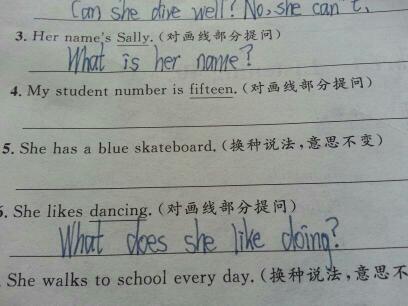 Can she dive well? No, she can't.
3. Her name's Sally. (对画线部分提问)
What is her name?
4. My student number is fifteen. (对画线部分提问)
5. She has a blue skateboard. (换种说法,意思不变)
6. She likes dancing. (对画线部分提问)
What does she like doing?
She walks to school every day. (换种说法,意思不